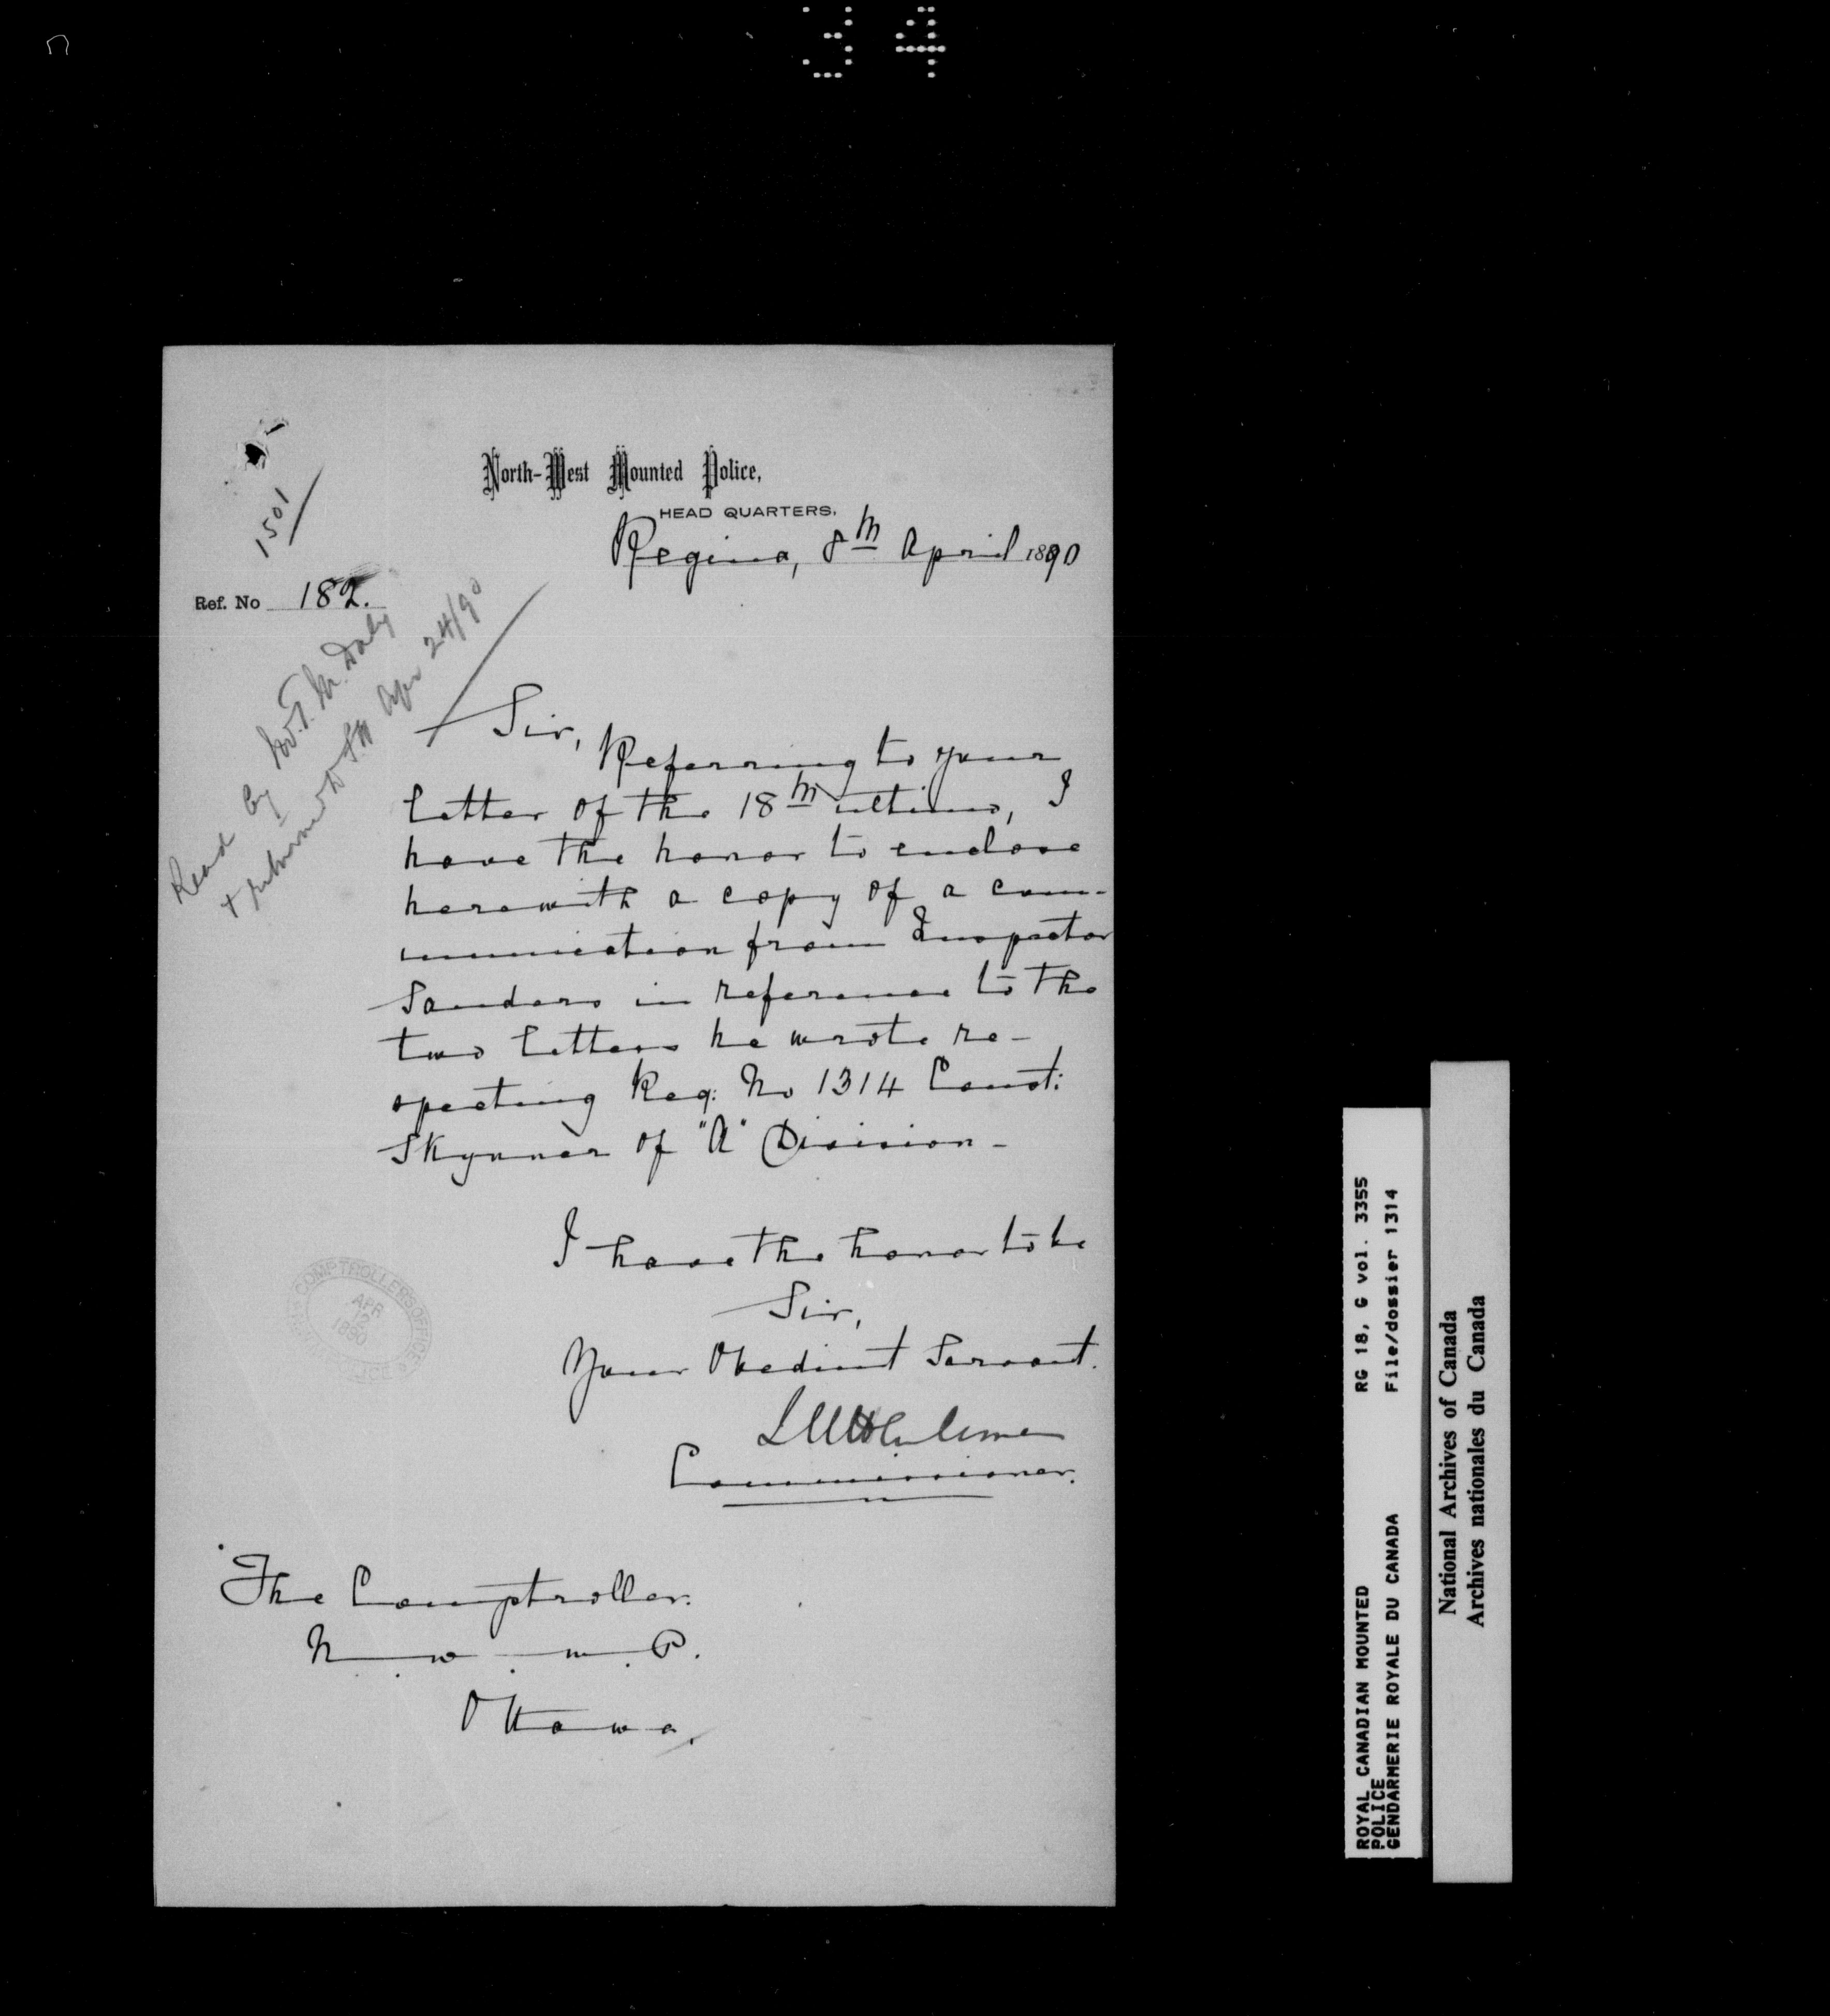 34
1501
North-West Mounted Police,
HEAD QUARTERS.
Regina, 8th April 1890
Ref. No 182.
Read by Mr. T. M. Daly
+ returned Apr 24/90
Sir,
Referring to your
letter of the 18th ultimo, I
have the honor to enclose
herewith a copy of a com-
munication from Inspector
Sanders in reference to the
two letters he wrote re-
specting Reg: No 1314 Const:
Skynner of "A" Division -
I have the honor to be
Sir,
Your Obedient Servant.
Commissioner.
COMPTROLLERS OFFICE
APR
12
1890
POLICE
The Comptroller.
N. W. M. P.
Ottawa.
ROYAL CANADIAN MOUNTED RG 18, G vol. 3355
POLICE
GENDARMERIE ROYALE DU CANADA File/dossier 1314
National Archives of Canada
Archives nationales du Canada